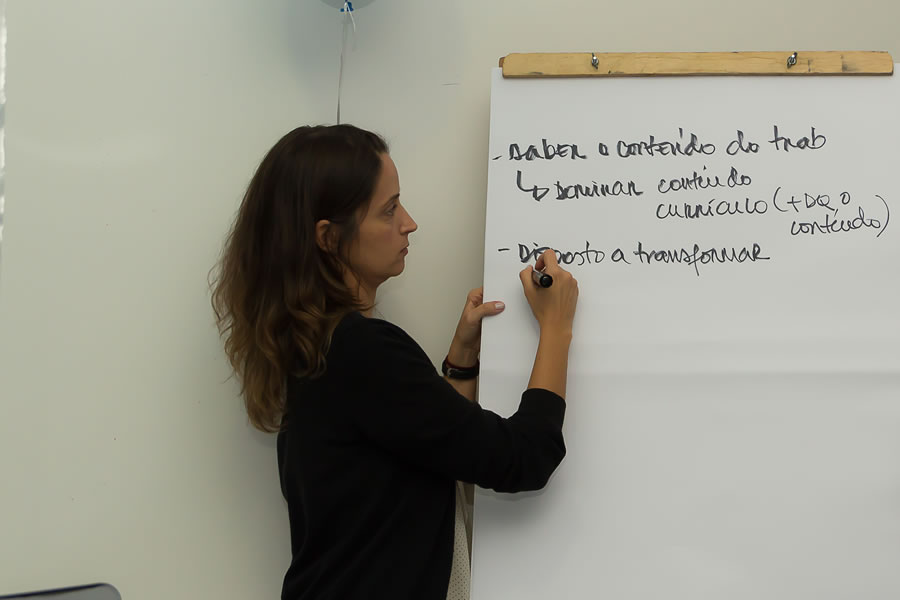 - SABER o conteúdo do trab
↳ DOMINAR conteúdo
currículo (+DQ, o
conteúdo)
- Disposto a transformar